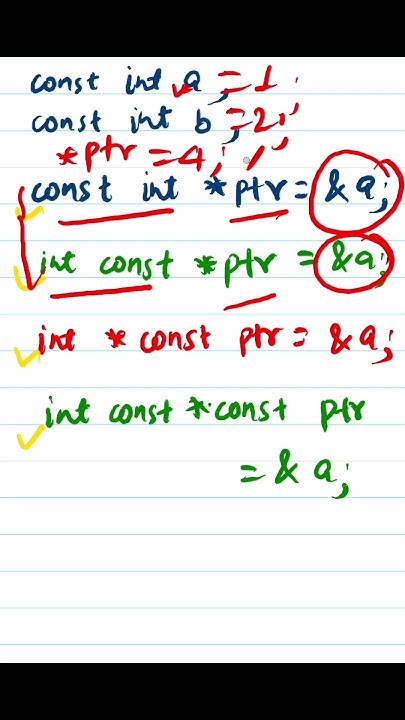 const int a = 1;
const int b = 2;
*ptr = 4;
const int *ptr = &a;
int const *ptr = &a;
int * const ptr = &a;
int const * const ptr
= & a;